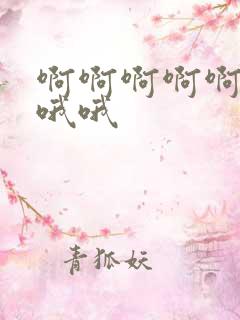 啊啊啊啊啊
哦哦
青狐妖